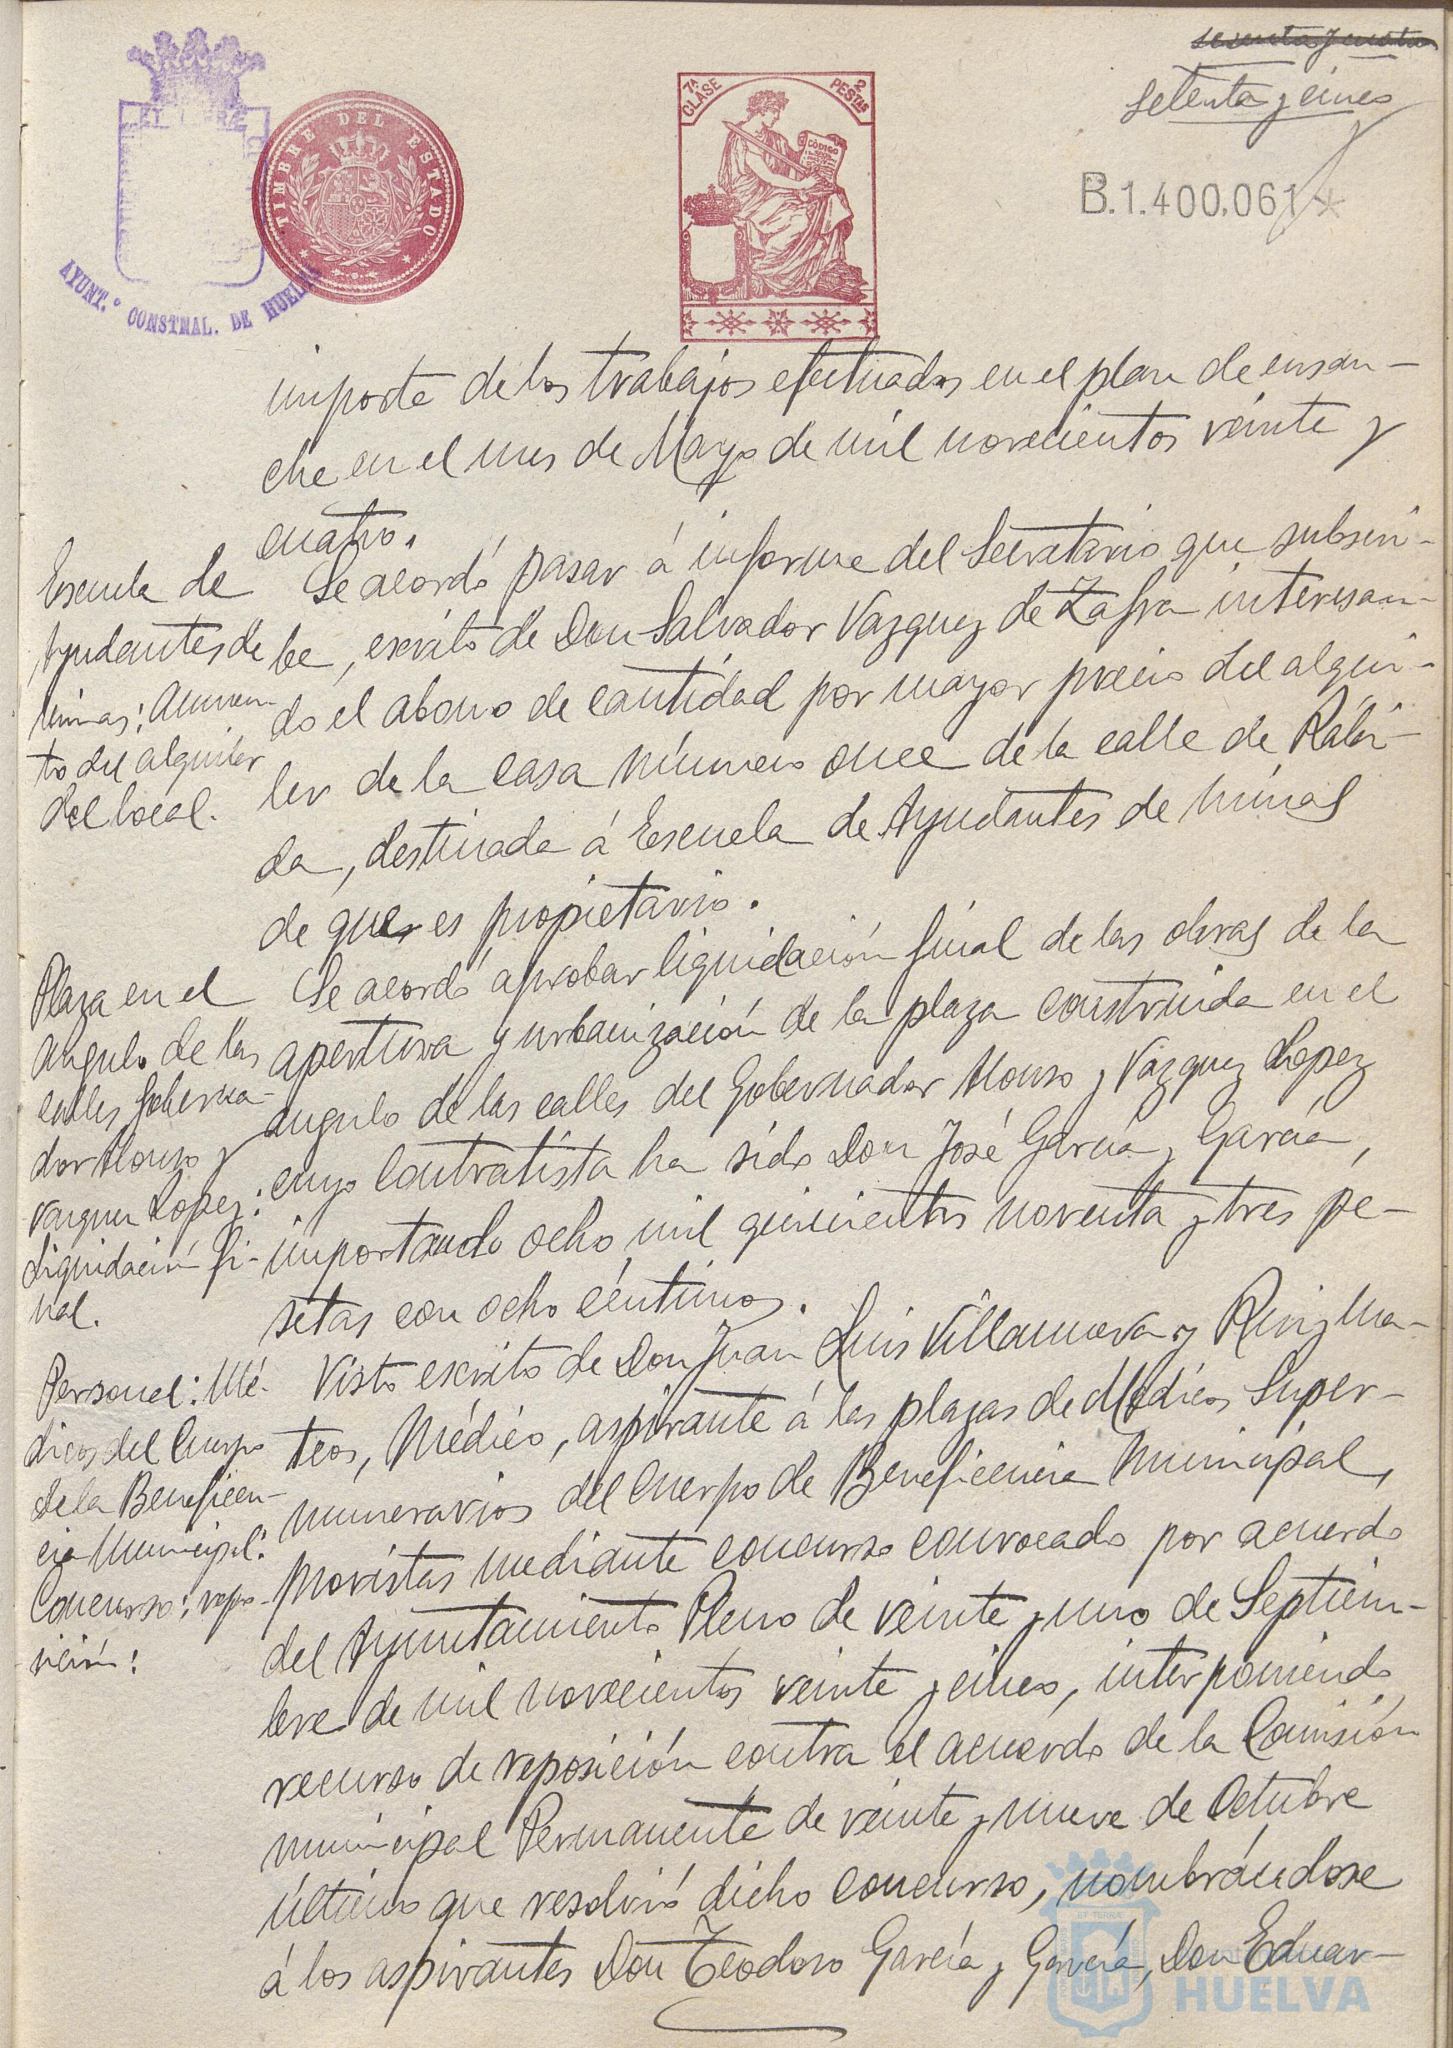 sesenta y cuatro
setenta y cinco
7ª CLASE
2 PESTAS
CÓDIGO
TIMBRE DEL ESTADO
B.1.400.061*
AYUNT.º CONSTNAL. DE HUELVA
importe de los trabajos efectuados en el plan de ensan-
che en el mes de Mayo de mil novecientos veinte y
cuatro.
Escuela de
Ayudantes de
minas: Aumen-
to del alquiler
del local.
Se acordó pasar á informe del Secretario que subscri-
be, escrito de Don Salvador Vazquez de Zafra interesan-
do el abono de cantidad por mayor precio del alqui-
ler de la casa número once de la calle de Rábi-
da, destinada á Escuela de Ayudantes de Minas
de que es propietario.
Plaza en el
ángulo de las
calles Goberna-
dor Alonso y
Vazquez Lopez:
Liquidación fi-
nal.
Se acordó aprobar liquidación final de las obras de la
apertura y urbanización de la plaza construida en el
angulo de las calles del Gobernador Alonso y Vazquez Lopez
cuyo Contratista ha sido Don José García y García,
importando ocho mil quinientas noventa y tres pe-
setas con ocho céntimos.
Personal: Mé-
dicos del Cuerpo
de la Beneficen-
cia Municipal:
Concurso: repo-
sición:
Visto escrito de Don Juan Luis Villanueva y Ruiz Ma-
teos, Médico, aspirante á las plazas de Médicos Super-
numerarios del Cuerpo de Beneficencia Municipal,
provistas mediante concurso convocado por acuerdo
del Ayuntamiento Pleno de veinte y uno de Septiem-
bre de mil novecientos veinte y cinco, interponiendo
recurso de reposición contra el acuerdo de la Comisión
municipal Permanente de veinte y nueve de Octubre
último que resolvió dicho concurso, nombrándose
á los aspirantes Don Teodoro García y García, Don Eduar-
HUELVA